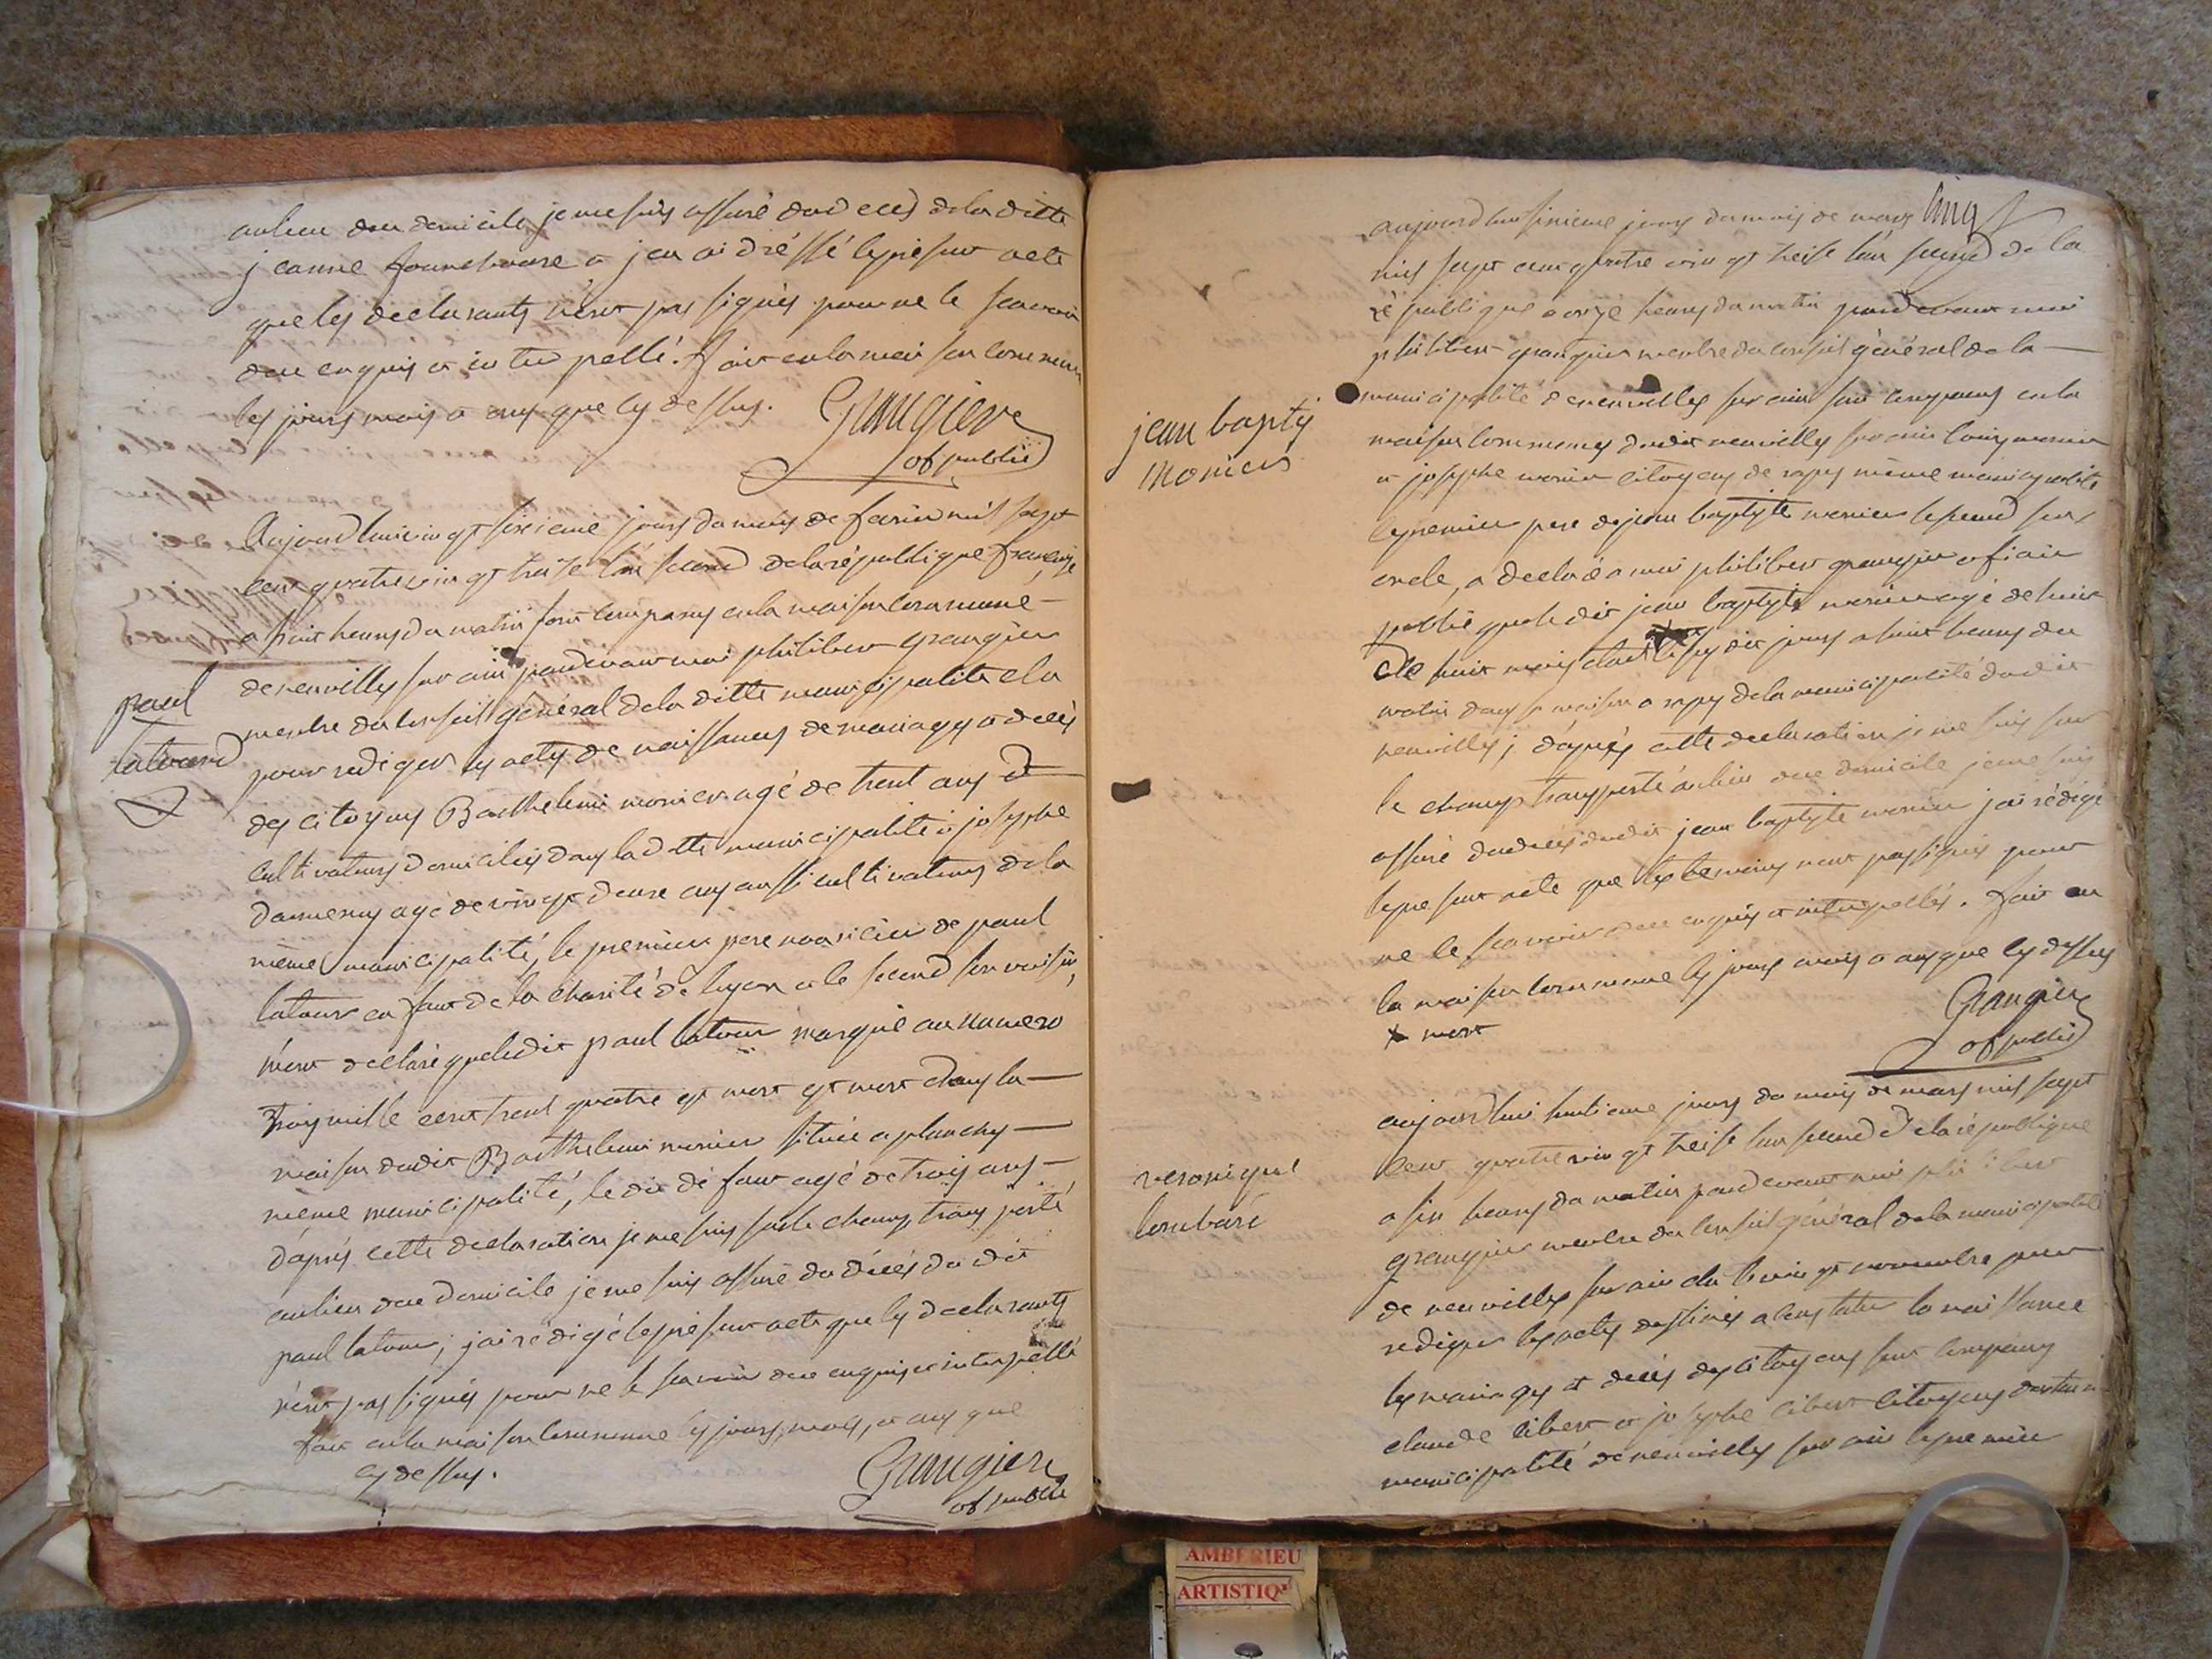 au lieu dou domicile je me suis assuré dud eces de la ditte
jeanne fournchoure et jen ai dréssé le present acte
que les declarants n'ont pas signés pour ne le scavoir
deu enquis et interpellé. fait en la maison commune
les jours mois et ans que cy dessus. Grangier
of public
Aujourdhui vingt sixieme jours du mois de fevrier mil sept
cent quatrevingt treise l'an second de la république françoise
a huit heures du matin sont comparus en la maison commune
de neuville sur ain pardevant moi philibert grangier
paul
latourd
membre du conseil général de la ditte municipalité elu
pour rediger les actes de naissances de mariages et decés
des citoyens Barthelemi monier agé de trent ans et
cultivateurs domicilié dans la ditte municipalité et josephe
agé de vingt deuse ans aussi cultivateurs de la
même municipalité, le premier pere nouricier de paul
latour enfant de la charité de lyon et le second son voisin,
m'ont déclaré que ledit paul latour marqué au numero
trois mille cent trent quatre est mort est mort dans la
maison dudit Barthelemi monier située a planches
même municipalité, le dit défunt agé de trois ans
d'aprés cette declaration je me suis sur le champ transporté
au lieu dou domicile je me suis assuré du décés du dit
paul latour, j'ai rédigé le présent acte que les declarants
n'ont pas signés pour ne le scavoir deu enquis et interpellé
fait en la maison commune les jours, mois, et ans que
cy dessus.
Grangier
of public
cinq
aujourdhui sixieme jours du mois de mars
mil sept cent quatre vingt treise l'an second de la
république a onze heures du matin pardevant moi
philibert grangier membre du conseil général de la
municipalité de neuville sur ain sont comparus en la
jean baptis
monier
maison commune dudit neuville sur ain louis monier
et josephe monier citoyens de rapes même municipalité
le premier pere de jean baptiste monier le second son
oncle, a declaré a moi philibert grangier oficier
public que le dit jean baptiste monier agé de huit
de huit mois est dit jours a huit heures du
matin dans sa maison a rapes de la municipalité dudit
neuville; d'aprés cette declaration je me suis sur
le champ transporté au lieu dou domicile je me suis
assuré du decés dudit jean baptiste monier j'ai rédigé
le present acte que les temoins n'ont pas signés pour
ne le scavoir deu enquis et interpellés. fait en
la maison commune les jours mois et ans que cy dessus
x mort
Grangier
of public
aujourdhui huitieme jours du mois de mars mil sept
cent quatre vingt treise l'an second de la république
veronique
lombard
a six heures du matin pardevant moi philibert
grangier membre du conseil général de la municipalité
de neuville sur ain elu le vingt novembre pour
rediger les actes destinés a constater la naissance
les mariages et décés des citoyens sont comparus
claude libert et josephe libert citoyens
municipalité de neuville sur ain le premier
AMBERIEU
ARTISTIQ